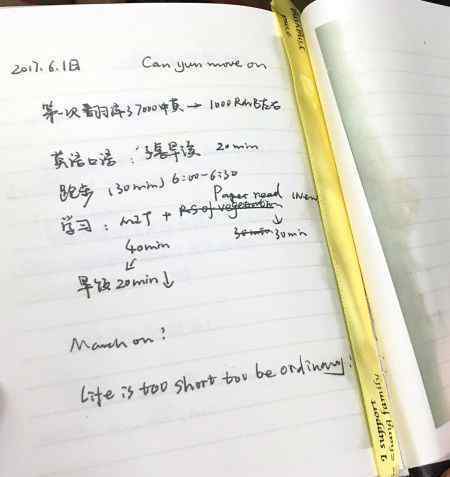 2017.6.1日 Can yun move on
第一次翻译了7000中英 → 1000RMB左右
英语口语: 早读 20min
跑步 (30min) 6:00-6:30
Paper read 1New
学习: MIT + RS of vegetation
40min 30min 30min
早饭 20min ↓
March on!
Life is too short too be ordinary!